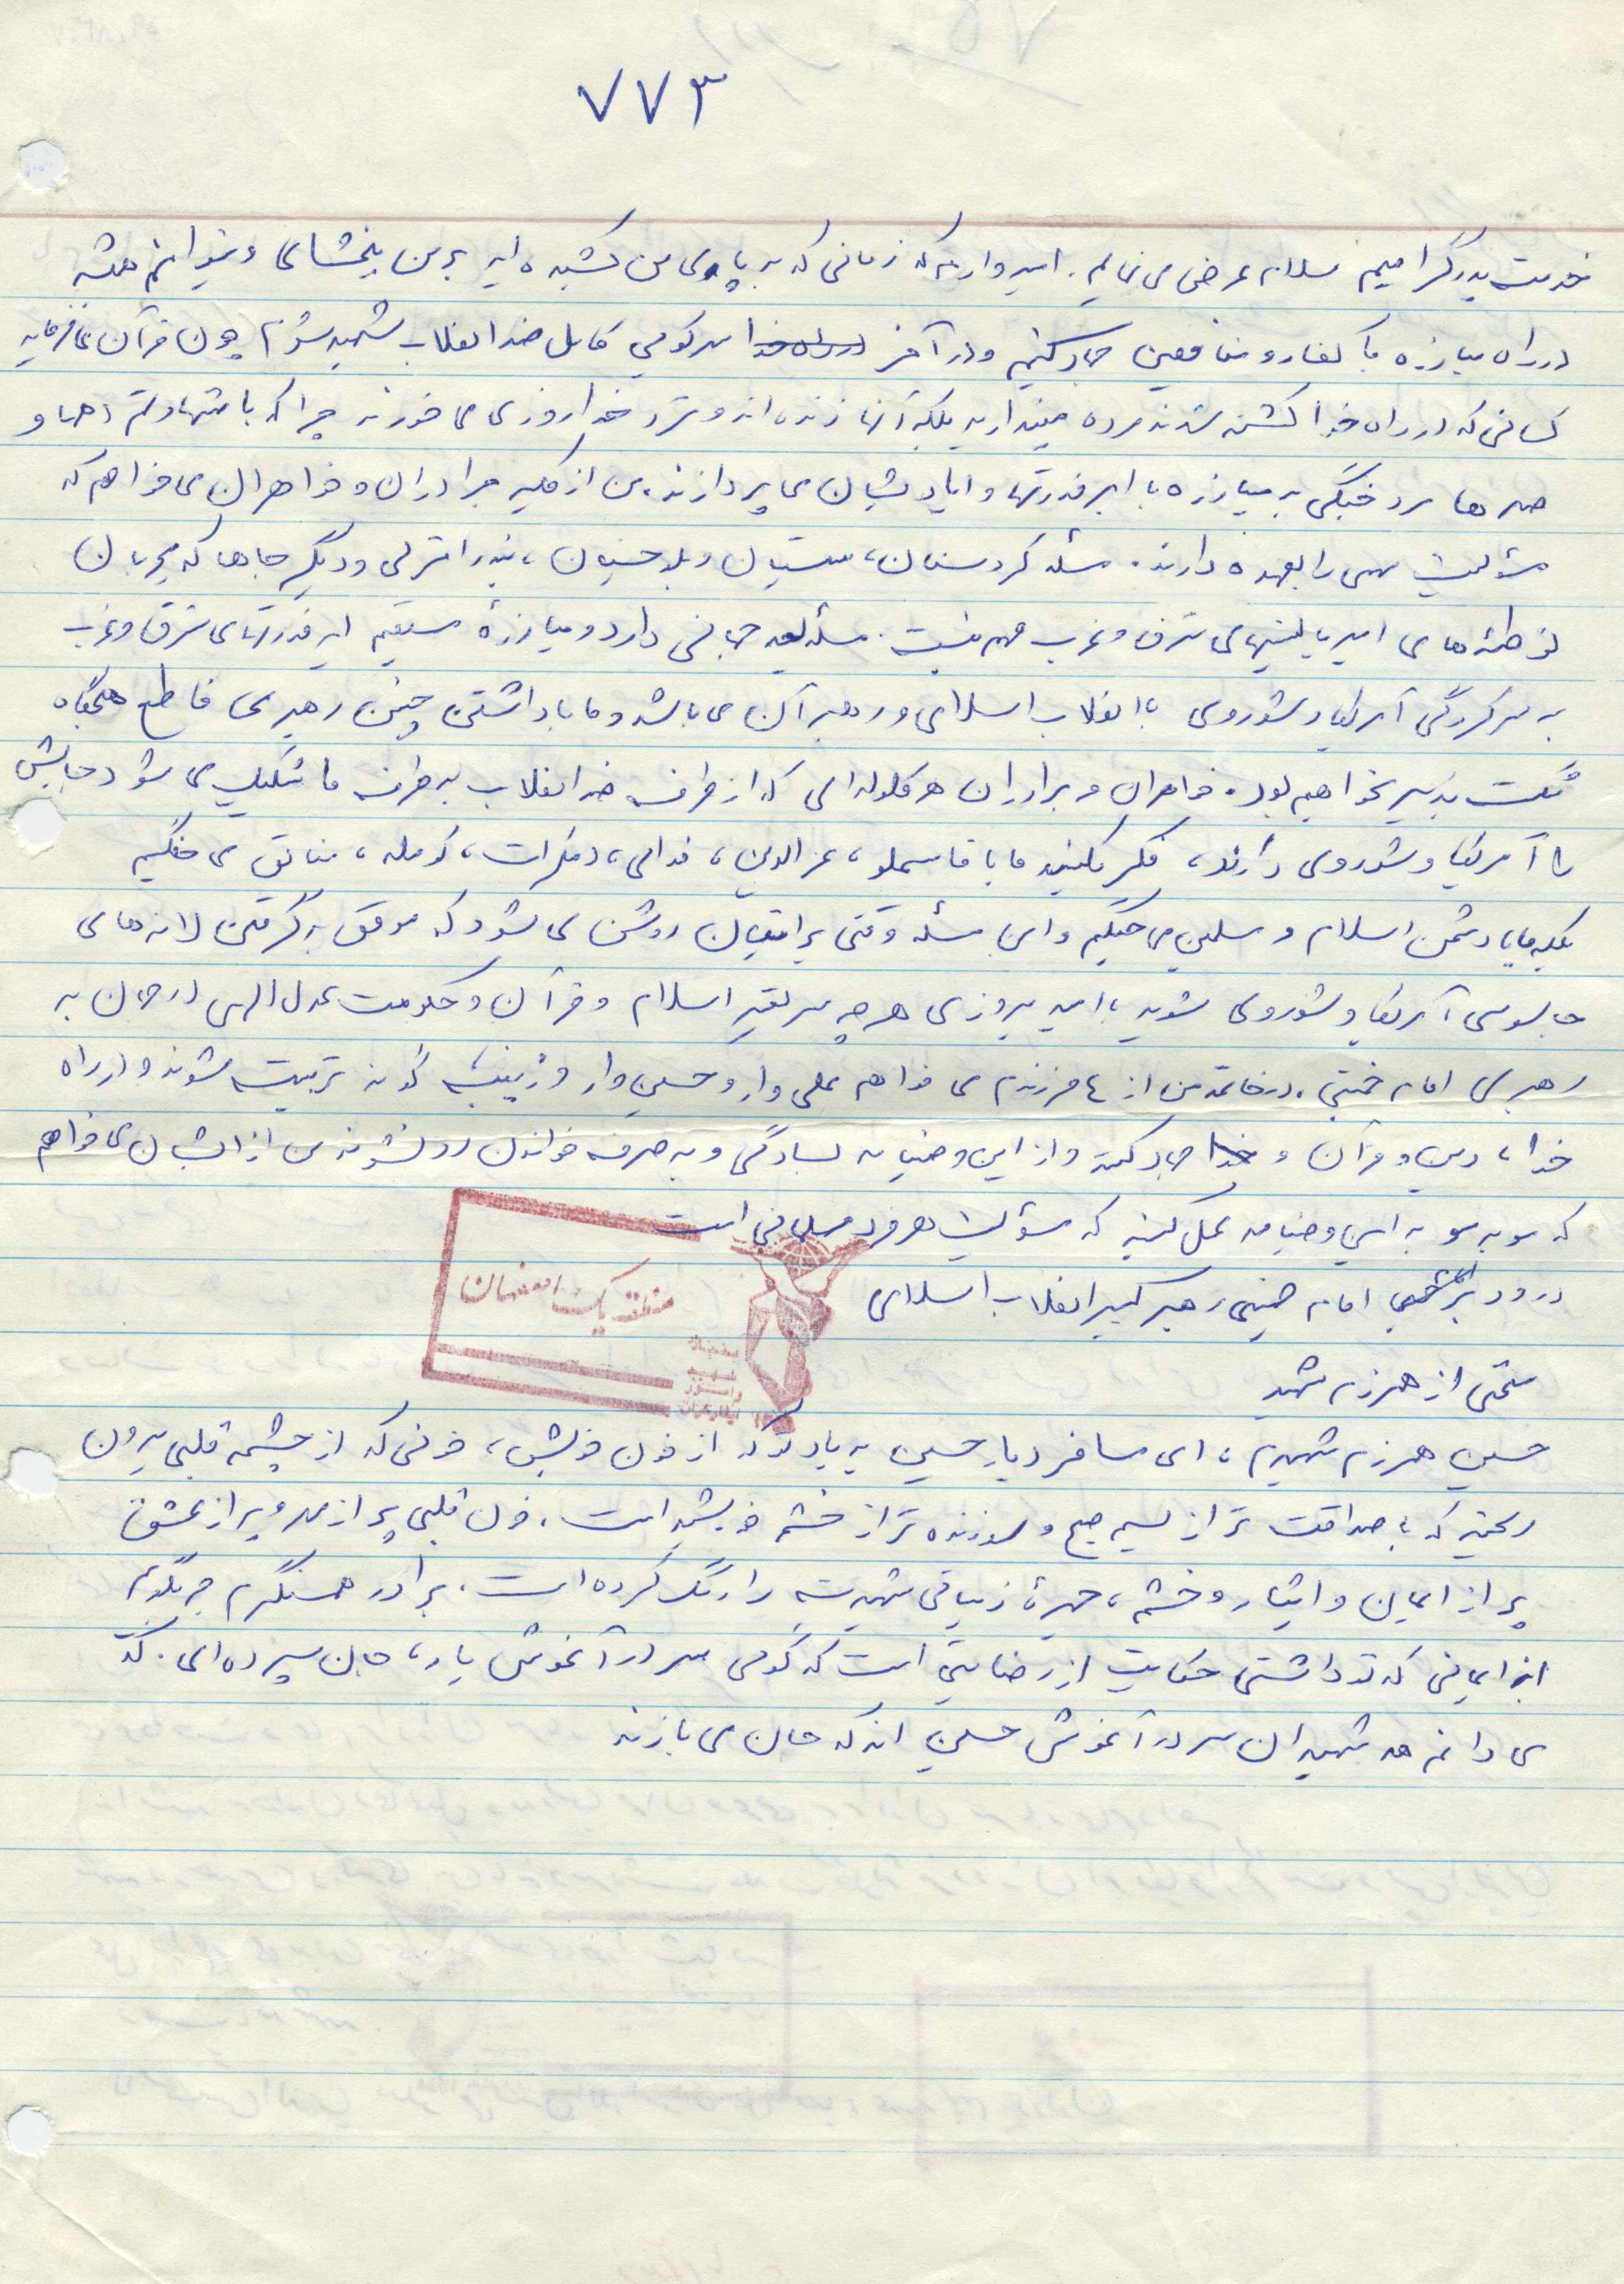 ۷۷۳
خدمت پدر گرامیم سلام عرض می نمایم. امیدوارم که زمانی که به پای من کشیده اید بر من ببخشای و بتوانم همیشه
در راه مبارزه با کفار و منافقین جهاد کنیم و در آخر سرکوبی کامل ضد انقلاب شهید شوم چون قرآن می فرماید
کسانی که در راه خدا کشته شدند مرده مپندارید بلکه آنها زنده اند و نزد خدا روزی می خورند چرا که با شهادتم دهها و
صدها مرد جنگی به مبارزه با ابرقدرتها و ایادیشان می پردازند. من از کلیه برادران و خواهران می خواهم که
مسئولیت مهمی را بعهده دارند. مسئله کردستان، سیستان و بلوچستان، بندر انزلی و دیگر جاها که مجریان
توطئه های امپریالیستهای شرق و غرب مهم نیست. مسئله بعد جهانی دارد و مبارزهٔ مستقیم ابرقدرتهای شرق و غرب
به سرکردگی آمریکا و شوروی با انقلاب اسلامی و رهبر آن می باشد و ما با داشتن چنین رهبری قاطع هیچگاه
شکست پذیر نخواهیم بود. خواهران و برادران هر گلوله ای که از طرف ضد انقلاب به طرف ما شلیک می شود جایش
را آمریکا و شوروی دارند، فکر نکنید ما با قاسملو، عزالدین، فدائی، دمکرات، کومله، منافق می جنگیم
بلکه ما با دشمن اسلام و مسلمین می جنگیم و این مسئله وقتی برایتان روشن می شود که موفق به گرفتن لانه های
جاسوسی آمریکا و شوروی شوید با امید پیروزی هر چه سریعتر اسلام و قرآن و حکومت عدل الهی در جهان به
رهبری امام خمینی. در خاتمه من از ۴ فرزندم می خواهم علی وار و حسین وار و زینب گونه تربیت شوند و در راه
خدا، دین و قرآن و جهاد کنند و از این وصیتنامه بسادگی و به صرف خواندن رد نشوند من از ایشان می خواهم
که مو به مو به این وصیتنامه عمل کنند که مسئولیت هر فرد مسلمانی است
درود بر امام خمینی رهبر کبیر انقلاب اسلامی
منطقه یک اصفهان
بنیاد
شهید
سخنی از همرزم شهید
حسین همرزم شهیدم، ای مسافر دیار حسین به یاد تو که از خون خویش، خونی که از چشمه قلبی بیرون
ریخته که با صداقت تر از نسیم صبح و سوزنده تر از خشم خورشید است، خون قلبی پر از مهر و پر از عشق
پر از ایمان و ایثار و خشم، چهرهٔ زیبای شهیدت را رنگ کرده است. برادر همسنگرم چه بگویم
از ایمانی که تو داشتی حکایت از رضایتی است که گویی سر در آغوش یار، جان سپرده ای. که
می دانم همه شهیدان سر در آغوش حسین اند که جان می بازند